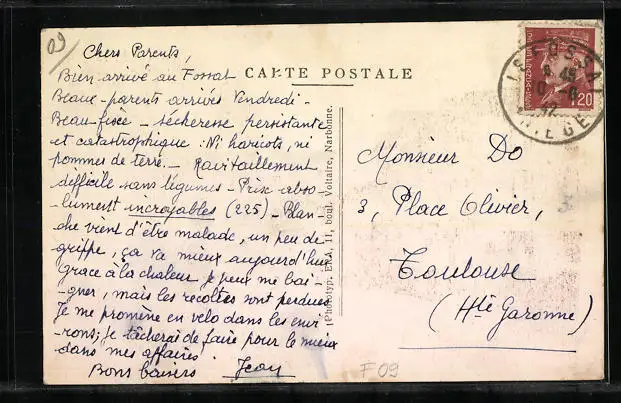 09
Chers Parents,
Bien arrivé au Fossat
CARTE POSTALE
Beaux-parents arrivés Vendredi -
Beau - sécheresse persistante
et catastrophique : Ni haricots, ni
pommes de terre. - Ravitaillement
difficile sans légumes - Prix abso-
-lument incroyables (225) - Blan-
che vient d'être malade, un peu de
grippe, ça va mieux aujourd'hui
grace à la chaleur je peux me bai-
-gner, mais les récoltes sont perdues
Je me promène en velo dans les envi-
-rons; je tâcherai de faire pour le mieux
dans mes affaires.
Bons baisers Jean
(Phototyp. ERA, 11, boul. Voltaire, Narbonne.
Monsieur Do
3, Place Olivier,
Toulouse
(Hte Garonne)
F 09
LE FOSSAT
ARIEGE
1f20